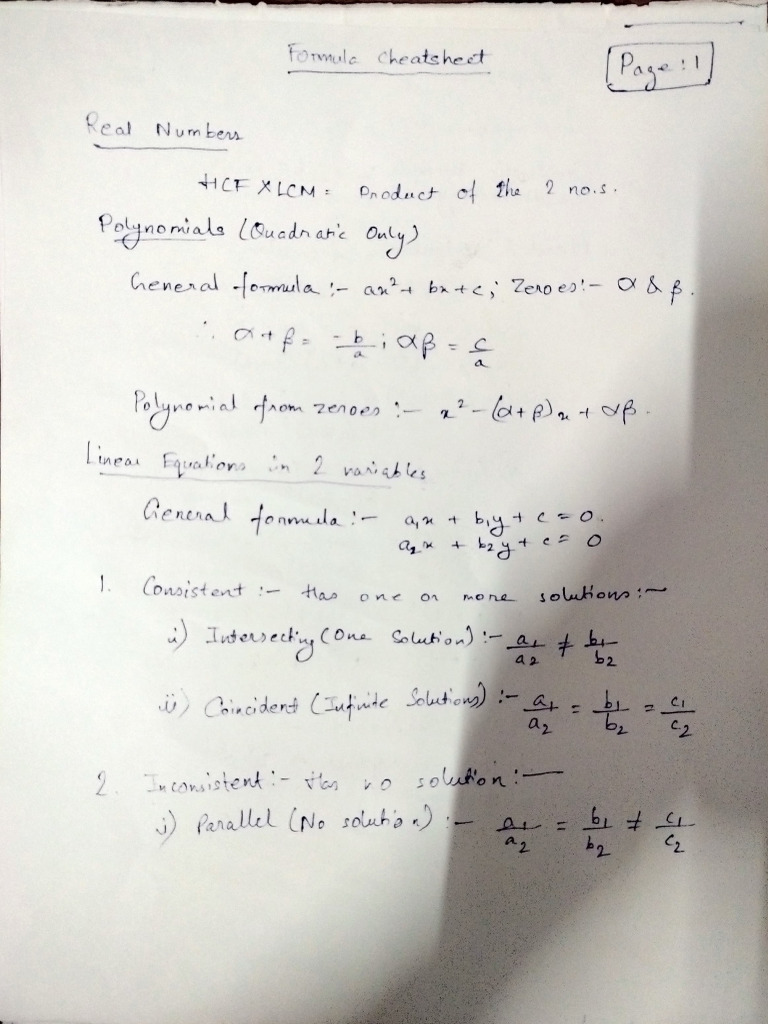 Formula Cheatsheet
Page: 1
Real Numbers
HCF X LCM = Product of the 2 no.s.
Polynomials (Quadratic Only)
General formula :- ax² + bx + c; Zeroes:- α & β.
∴ α + β = -b/a ; αβ = c/a
Polynomial from zeroes :- x² - (α+β)x + αβ.
Linear Equations in 2 variables
General formula :- a₁x + b₁y + c = 0.
a₂x + b₂y + c = 0
1. Consistent :- Has one or more solutions :-
i) Intersecting (One Solution) :- a₁/a₂ ≠ b₁/b₂
ii) Coincident (Infinite Solutions) :- a₁/a₂ = b₁/b₂ = c₁/c₂
2. Inconsistent :- Has no solution :-
i) Parallel (No solution) :- a₁/a₂ = b₁/b₂ ≠ c₁/c₂